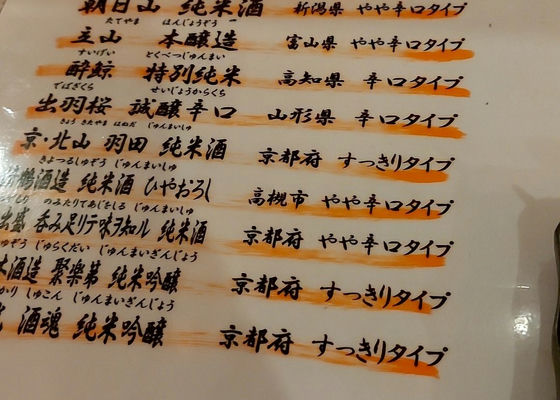 朝日山 純米酒 新潟県 やや辛口タイプ
たてやま ほんじょうぞう
立山 本醸造 富山県 やや辛口タイプ
すいげい とくべつじゅんまい
酔鯨 特別純米 高知県 辛口タイプ
でばざくら せいじょうからくち
出羽桜 誠醸辛口 山形県 辛口タイプ
きょう きたやま はねだ じゅんまいしゅ
京・北山 羽田 純米酒 京都府 すっきりタイプ
きよつるしゅぞう じゅんまいしゅ
鶴酒造 純米酒 ひやおろし 高槻市 やや辛口タイプ
のみたりてあじをしる じゅんまいしゅ
出盛 呑み足リテ味ヲ知ル 純米酒 京都府 やや辛口タイプ
ゅぞう じゅらくだい じゅんまいぎんじょう
酒造 聚楽第 純米吟醸 京都府 すっきりタイプ
かり しゅこん じゅんまいぎんじょう
酒魂 純米吟醸 京都府 すっきりタイプ